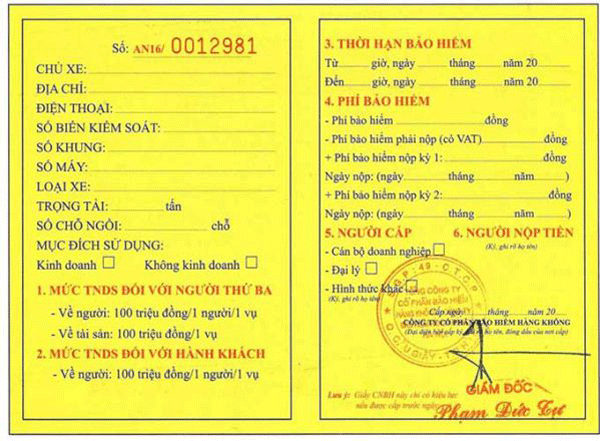 Số: AN16/ 0012981
CHỦ XE:
ĐỊA CHỈ:
ĐIỆN THOẠI:
SỐ BIỂN KIỂM SOÁT:
SỐ KHUNG:
SỐ MÁY:
LOẠI XE:
TRỌNG TẢI: tấn
SỐ CHỖ NGỒI: chỗ
MỤC ĐÍCH SỬ DỤNG:
Kinh doanh Không kinh doanh
1. MỨC TNDS ĐỐI VỚI NGƯỜI THỨ BA
- Về người: 100 triệu đồng/1 người/1 vụ
- Về tài sản: 100 triệu đồng/1 vụ
2. MỨC TNDS ĐỐI VỚI HÀNH KHÁCH
- Về người: 100 triệu đồng/1 người/1 vụ
3. THỜI HẠN BẢO HIỂM
Từ giờ, ngày tháng năm 20
Đến giờ, ngày tháng năm 20
4. PHÍ BẢO HIỂM
- Phí bảo hiểm đồng
- Phí bảo hiểm phải nộp (có VAT) đồng
+ Phí bảo hiểm nộp kỳ 1: đồng
Ngày nộp: (ngày tháng năm )
+ Phí bảo hiểm nộp kỳ 2: đồng
Ngày nộp: (ngày tháng năm )
5. NGƯỜI CẤP 6. NGƯỜI NỘP TIỀN
- Cán bộ doanh nghiệp (Ký, ghi rõ họ tên)
- Đại lý
- Hình thức khác
(Ký, ghi rõ họ tên)
Cấp ngày tháng năm 20
CÔNG TY CỔ PHẦN BẢO HIỂM HÀNG KHÔNG
TỔNG CÔNG TY
CỔ PHẦN BẢO HIỂM
HÀNG KHÔNG
Lưu ý: Giấy CNBH này chỉ có hiệu lực
nếu được cấp trước ngày
GIÁM ĐỐC
Phạm Đức Tự